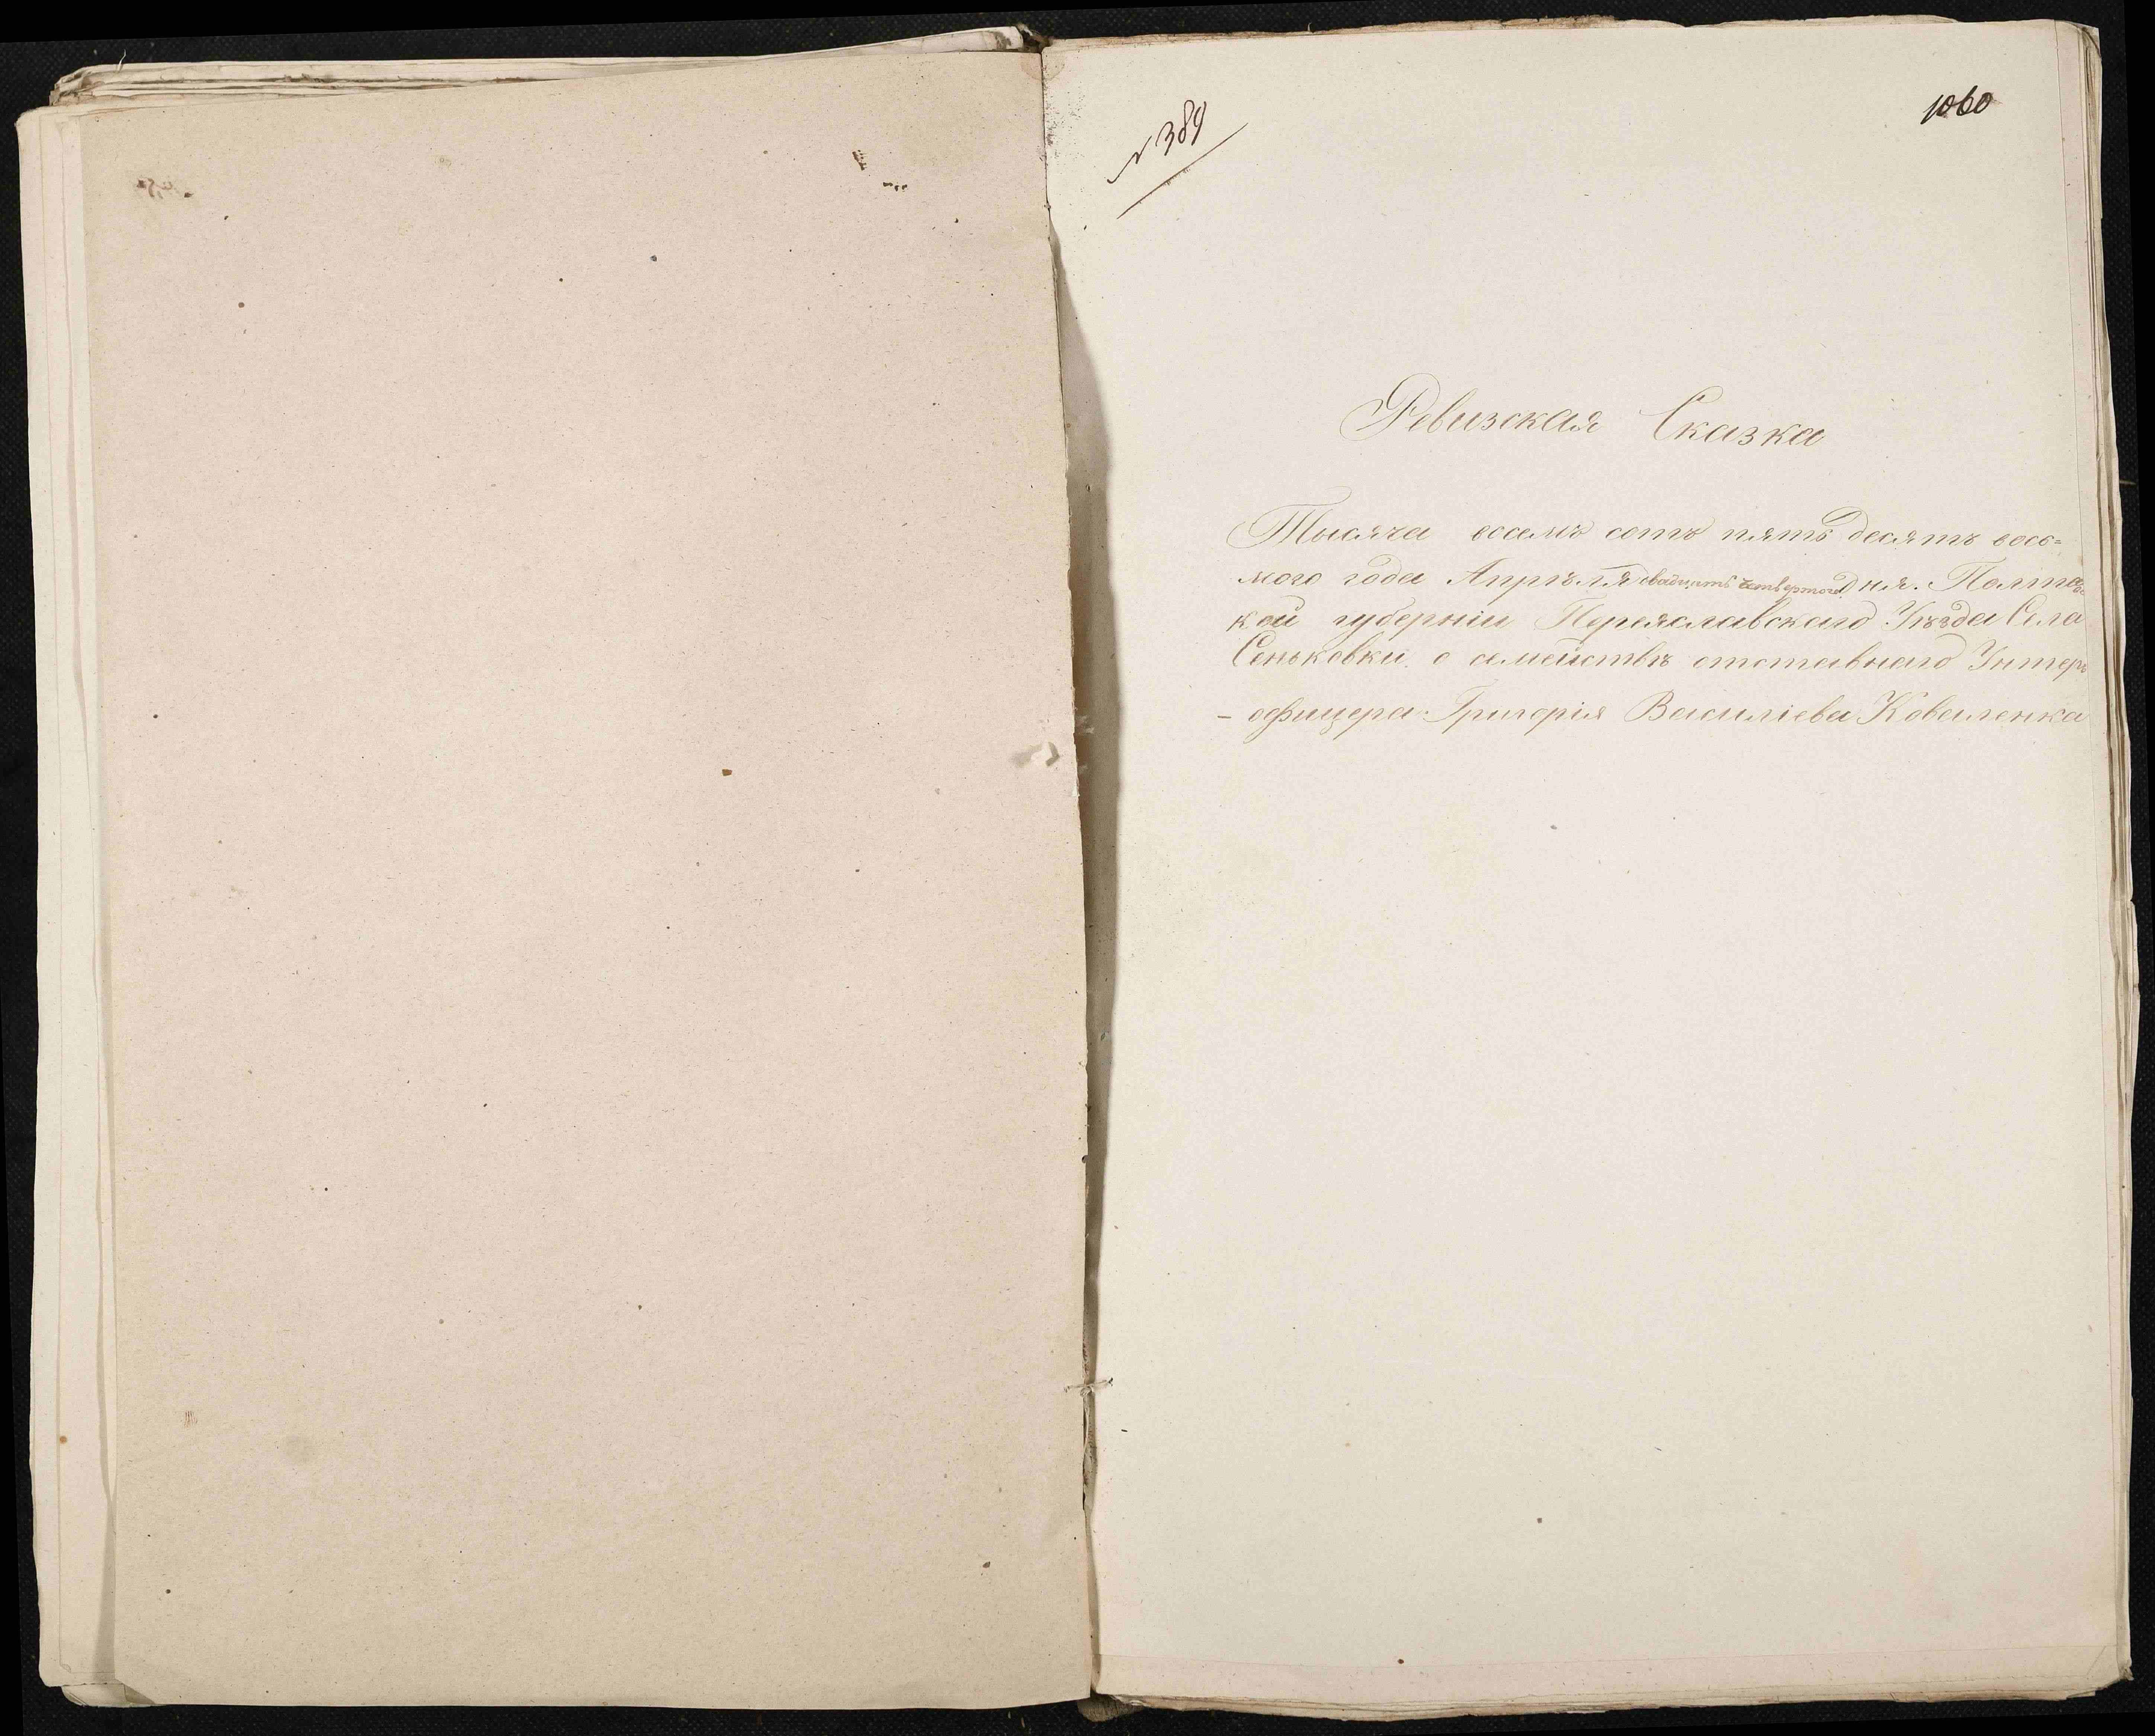 1060
N 389
Ревизская Сказка
Тысяча восемъ сотъ пять десятъ вось=
мого года Апрѣля двадцать четвертого дня. Полтавс
кой губерніи Переяславского Уѣзда Села
Сеньковки о семействѣ отставнаго Унтеръ
- офицера Григорія Василіева Коваленка